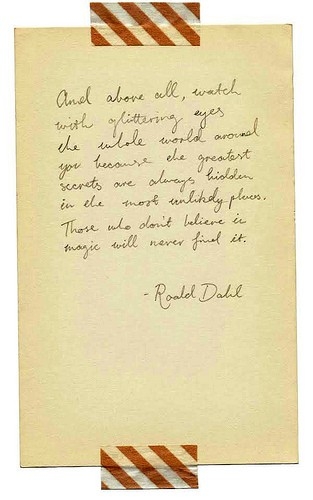 And above all, watch
with glittering eyes
the whole world around
you because the greatest
secrets are always hidden
in the most unlikely places.
Those who don't believe in
magic will never find it.
- Roald Dahl